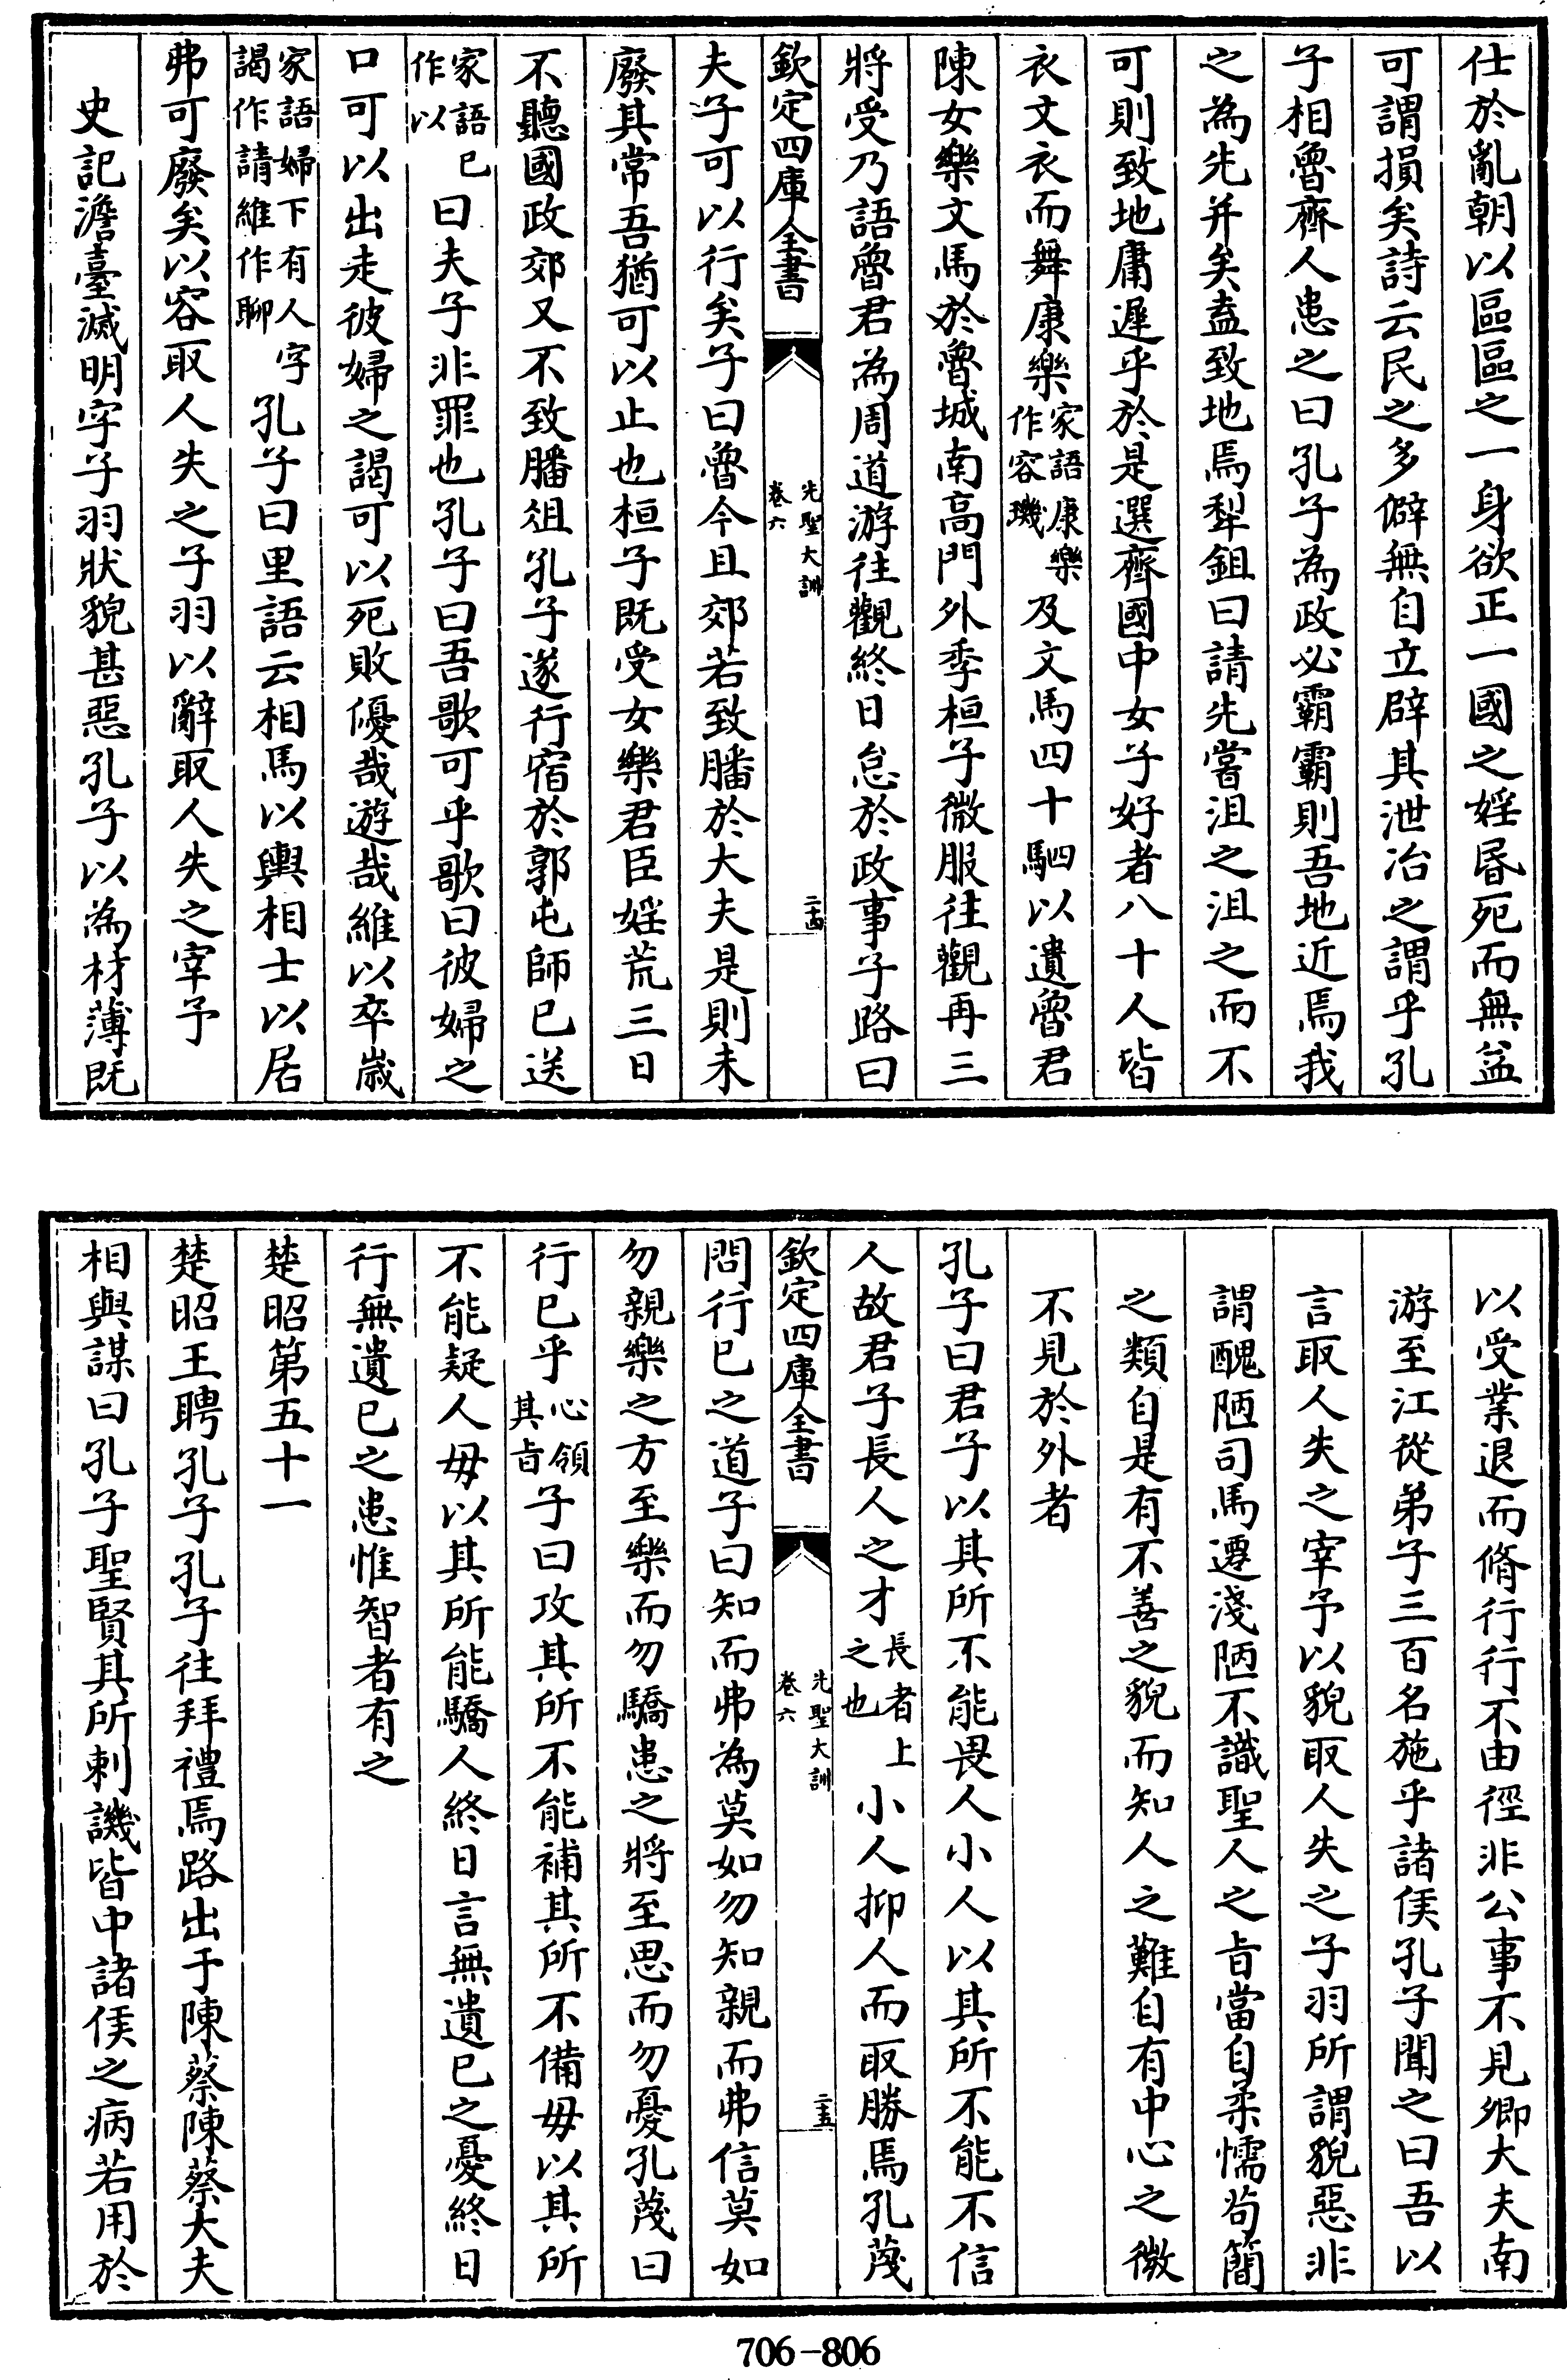 仕於亂朝以區區之一身欲正一國之婬昬死而無益
可謂損矣詩云民之多僻無自立辟其泄冶之謂乎孔
子相魯齊人患之曰孔子為政必霸霸則吾地近焉我
之為先并矣盍致地焉犁鉏曰請先嘗沮之沮之而不
可則致地庸遲乎於是選齊國中女子好者八十人皆
衣文衣而舞康樂家語康樂作容璣及文馬四十駟以遺魯君
陳女樂文馬於魯城南高門外季桓子微服往觀再三
將受乃語魯君為周道游往觀終日怠於政事子路曰
欽定四庫全書 先聖大訓 卷六 二十四
夫子可以行矣子曰魯今且郊若致膰於大夫是則未
廢其常吾猶可以止也桓子既受女樂君臣婬荒三日
不聽國政郊又不致膰俎孔子遂行宿於郭屯師已送
家語已作以曰夫子非罪也孔子曰吾歌可乎歌曰彼婦之
口可以出走彼婦之謁可以死敗優哉遊哉維以卒嵗
家語婦下有人字謁作請維作聊孔子曰里語云相馬以輿相士以居
弗可廢矣以容取人失之子羽以辭取人失之宰予
史記澹臺滅明字子羽狀貌甚惡孔子以為材薄既
以受業退而脩行行不由徑非公事不見卿大夫南
游至江從弟子三百名施乎諸侯孔子聞之曰吾以
言取人失之宰予以貌取人失之子羽所謂貌惡非
謂醜陋司馬遷淺陋不識聖人之㫖當自柔懦茍簡
之類自是有不善之貌而知人之難自有中心之微
不見於外者
孔子曰君子以其所不能畏人小人以其所不能不信
人故君子長人之才長者上之也小人抑人而取勝焉孔蔑
欽定四庫全書 先聖大訓 卷六 二十五
問行已之道子曰知而弗為莫如勿知親而弗信莫如
勿親樂之方至樂而勿驕患之將至思而勿憂孔蔑曰
行已乎心領其㫖子曰攻其所不能補其所不備毋以其所
不能疑人毋以其所能驕人終日言無遺已之憂終日
行無遺已之患惟智者有之
楚昭第五十一
楚昭王聘孔子孔子往拜禮焉路出于陳蔡陳蔡大夫
相與謀曰孔子聖賢其所刺譏皆中諸侯之病若用於
706-806